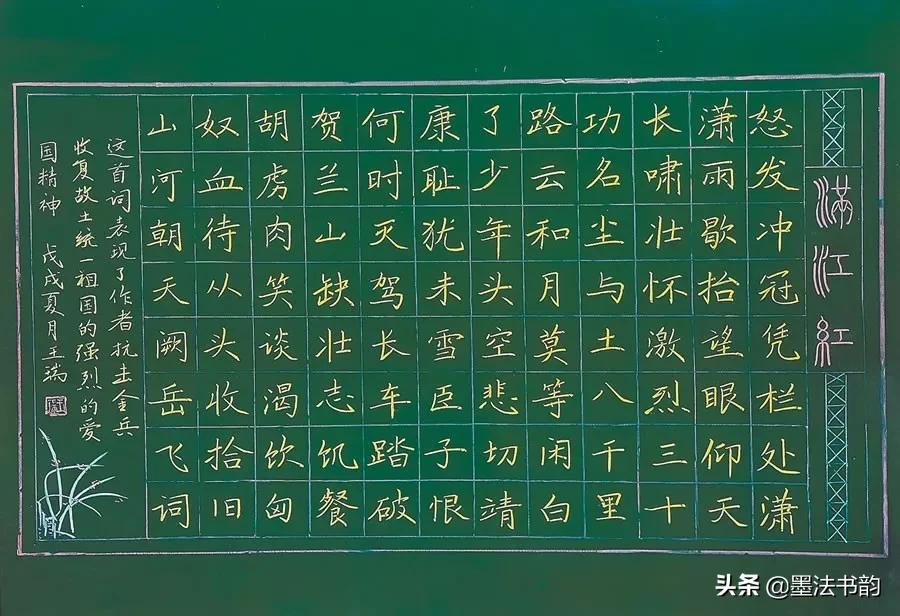 滿江紅
怒发冲冠凭栏处潇
潇雨歇抬望眼仰天
长啸壮怀激烈三十
功名尘与土八千里
路云和月莫等闲白
了少年头空悲切靖
康耻犹未雪臣子恨
何时灭驾长车踏破
贺兰山缺壮志饥餐
胡虏肉笑谈渴饮匈
奴血待从头收拾旧
山河朝天阙岳飞词
这首词表现了作者抗击金兵
收复故土统一祖国的强烈的爱
国精神 戊戌夏月王瑞
头条 @墨法书韵